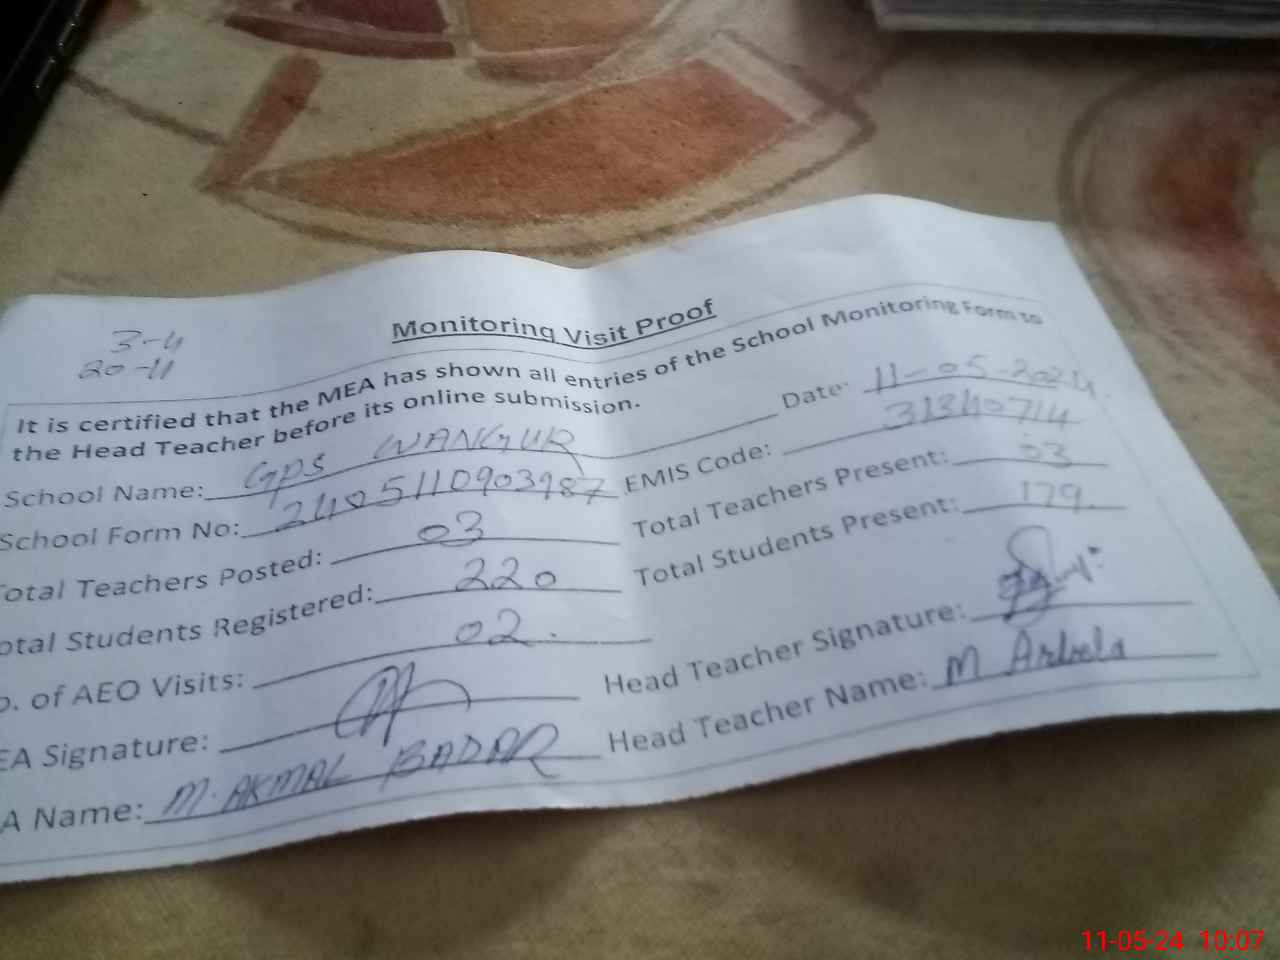 3-4
20-11
Monitoring Visit Proof
It is certified that the MEA has shown all entries of the School Monitoring Form to
the Head Teacher before its online submission.
Date: 11-05-2024
School Name: GPS WANGUR
EMIS Code: 31340714
School Form No: 2405110903987
Total Teachers Present: 03
Total Teachers Posted: 03
Total Students Present: 179
otal Students Registered: 220
o. of AEO Visits: 02.
Head Teacher Signature:
EA Signature:
Head Teacher Name: M
A Name: M. AKMAL BADAR
11-05-24 10:07